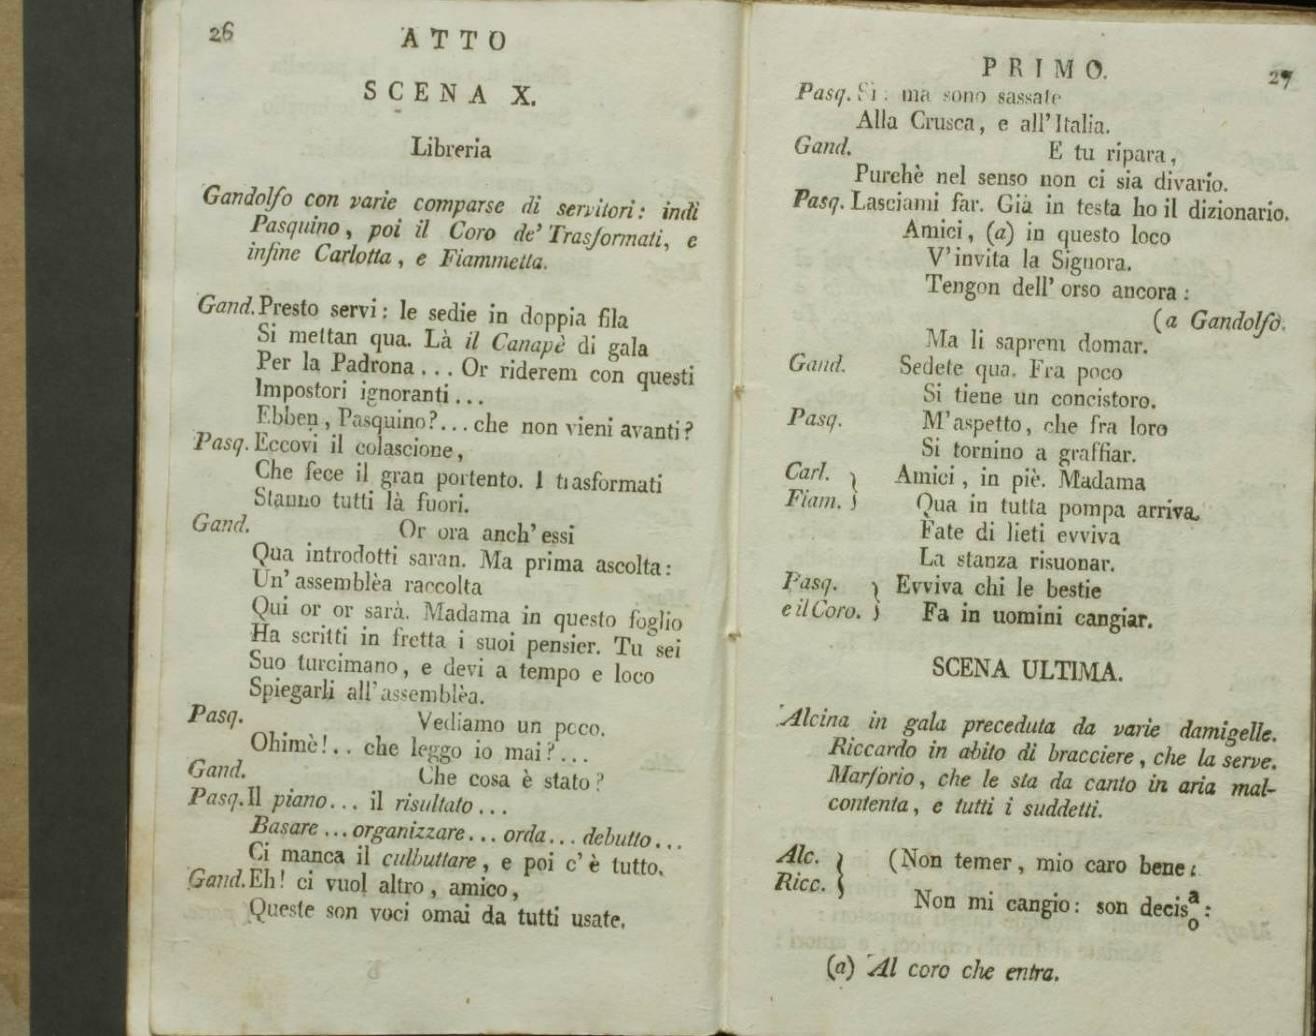 26
ATTO
SCENA X.
Libreria
Gandolfo con varie comparse di servitori: indi
Pasquino, poi il Coro de' Trasformati, e
infine Carlotta, e Fiammetta.
Gand. Presto servi: le sedie in doppia fila
Si mettan qua. Là il Canapè di gala
Per la Padrona... Or riderem con questi
Impostori ignoranti...
Ebben, Pasquino?... che non vieni avanti?
Pasq. Eccovi il colascione,
Che fece il gran portento. I trasformati
Stanno tutti là fuori.
Gand. Or ora anch' essi
Qua introdotti saran. Ma prima ascolta:
Un' assemblèa raccolta
Qui or or sarà. Madama in questo foglio
Ha scritti in fretta i suoi pensier. Tu sei
Suo turcimano, e devi a tempo e loco
Spiegarli all' assemblèa.
Pasq. Vediamo un poco.
Ohimè!.. che leggo io mai?...
Gand. Che cosa è stato?
Pasq. Il piano... il risultato...
Basare... organizzare... orda... debutto...
Ci manca il culbuttare, e poi c' è tutto.
Gand. Eh! ci vuol altro, amico,
Queste son voci omai da tutti usate.
PRIMO. 27
Pasq. Sì: ma sono sassate
Alla Crusca, e all' Italia.
Gand. E tu ripara,
Purchè nel senso non ci sia divario.
Pasq. Lasciami far. Già in testa ho il dizionario.
Amici, (a) in questo loco
V' invita la Signora.
Tengon dell' orso ancora:
(a Gandolfo.
Ma li saprem domar.
Gand. Sedete qua. Fra poco
Si tiene un concistoro.
Pasq. M' aspetto, che fra loro
Si tornino a graffiar.
Carl. } Amici, in piè. Madama
Fiam. } Qua in tutta pompa arriva.
Fate di lieti evviva
La stanza risuonar.
Pasq. } Evviva chi le bestie
e il Coro. } Fa in uomini cangiar.
SCENA ULTIMA.
Alcina in gala preceduta da varie damigelle.
Riccardo in abito di bracciere, che la serve.
Marforio, che le sta da canto in aria mal-
contenta, e tutti i suddetti.
Alc. } (Non temer, mio caro bene:
Ricc. } Non mi cangio: son decisa/o:
(a) Al coro che entra.